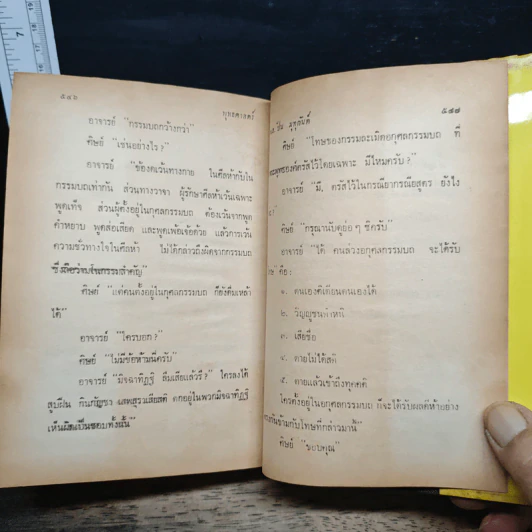 ๕๔๖
พุทธศาสตร์
อาจารย์ "กรรมบถกว้างกว่า"
ศิษย์ "เช่นอย่างไร?"
อาจารย์ "ข้องดเว้นทางกาย ในศีลห้ากับใน
กรรมบถเท่ากัน ส่วนทางวาจา ผู้รักษาศีลห้าเว้นเฉพาะ
พูดเท็จ ส่วนผู้ตั้งอยู่ในกุศลกรรมบถ ต้องเว้นจากพูด
คำหยาบ พูดส่อเสียด และพูดเพ้อเจ้อด้วย แล้วการเว้น
ความชั่วทางใจในศีลห้า ไม่ได้กล่าวถึงผิดจากกรรมบถ
ซึ่งถือว่ามโนกรรมสำคัญ"
ศิษย์ "แต่คนตั้งอยู่ในกุศลกรรมบถ ก็ยังดื่มเหล้า
ได้"
อาจารย์ "ใครบอก?"
ศิษย์ "ไม่มีข้อห้ามนี่ครับ"
อาจารย์ "มิจฉาทิฏฐิ ลืมเสียแล้วรึ? ใครลงได้
สูบฝิ่น กินกัญชา เสพสุราเสียสติ ตกอยู่ในพวกมิจฉาทิฏฐิ
เห็นผิดเป็นชอบทั้งนั้น"
๕๔๗
ปิ่น มุทุกันต์
ศิษย์ "โทษของการละเมิดอกุศลกรรมบถ ที่
พระพุทธองค์ตรัสไว้โดยเฉพาะ มีไหมครับ?"
อาจารย์ "มี, ตรัสไว้ในกรณียากรณียสูตร ยังไง
ศิษย์ "กรุณานับดูย่อ ๆ ซิครับ"
อาจารย์ "ได้ คนล่วงอกุศลกรรมบถ จะได้รับ
คือ:
๑. ตนเองติเตียนตนเองได้
๒. วิญญูชนตำหนิ
๓. เสียชื่อ
๔. ตายไม่ได้สติ
๕. ตายแล้วเข้าถึงทุคคติ
ใครตั้งอยู่ในกุศลกรรมบถ ก็จะได้รับผลดีห้าอย่าง
ตรงกันข้ามกับโทษที่กล่าวมานี้"
ศิษย์ "ขอบคุณ"